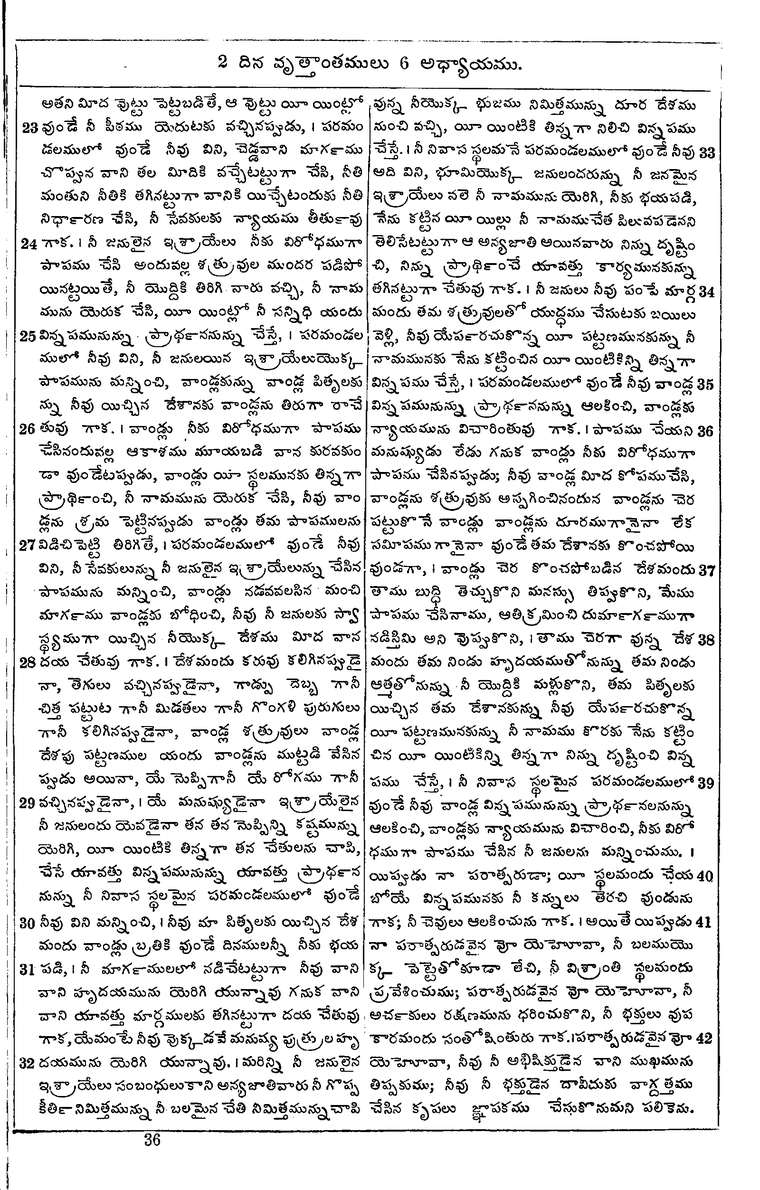 2 దిన వృత్తాంతములు 6 అధ్యాయము.
అతని మీద వుట్టు పెట్టబడితే, ఆ వుట్టు యీ యింట్లో
23 వుండే నీ పీఠము యెదుటకు వచ్చినప్పుడు, । పరమం
డలములో వుండే నీవు విని, చెడ్డవాని మార్గము
చొప్పున వాని తల మిదికి వచ్చేటట్టుగా చేసి, నీతి
మంతుని నీతికి తగినట్టుగా వానికి యిచ్చేటందుకు నీతి
నిర్ధారణ చేసి, నీ సేవకులకు న్యాయము తీతువు
24 గాక. । నీ జనులైన ఇశ్రాయేలు నీకు విరోధముగా
పాపము చేసి అందువల్ల శత్రువుల ముందర పడిపో
యినట్టయితే, నీ యొద్దికి తిరిగి వారు వచ్చి, నీ నామ
మును యెరుక చేసి, యీ యింట్లో నీ సన్నిధి యందు
25 విన్నపమునున్ను ప్రార్థననున్ను చేస్తే, । పరమండల
ములో నీవు విని, నీ జనులయిన ఇశ్రాయేలుయొక్క
పాపమును మన్నించి, వాండ్లకున్ను వాండ్ల పితృలకు
న్ను నీవు యిచ్చిన దేశానకు వాండ్లను తిరుగా రాచే
26 తువు గాక. । వాండ్లు నీకు విరోధముగా పాపము
చేసినందువల్ల ఆకాశము మూయబడి వాన కురవకుం
డా వుండేటప్పుడు, వాండ్లు యీ స్థలమునకు తిన్నగా
ప్రార్థించి, నీ నామమును యెరుక చేసి, నీవు వాం
డ్లను శ్రమ పెట్టినప్పుడు వాండ్లు తమ పాపములను
27 విడిచిపెట్టి తిరిగితే, । పరమండలములో వుండే నీవు
విని, నీ సేవకులున్ను నీ జనులైన ఇశ్రాయేలున్ను చేసిన
పాపమును మన్నించి, వాండ్లు నడవవలసిన మంచి
మార్గము వాండ్లకు బోధించి, నీవు నీ జనులకు స్వా
స్థ్యముగా యిచ్చిన నీయొక్క దేశము మీద వాన
28 దయ చేతువు గాక. । దేశమందు కరువు కలిగినప్పుడై
నా, తెగులు వచ్చినప్పుడైనా, గాడ్పు దెబ్బ గానీ
చిత్త పట్టుట గానీ మిడతలు గానీ గొంగళి పురుగులు
గానీ కలిగినప్పుడైనా, వాండ్ల శత్రువులు వాండ్ల
దేశపు పట్టణముల యందు వాండ్లను ముట్టడి వేసిన
ప్పుడు అయినా, యే నొప్పిగానీ యే రోగము గానీ
29 వచ్చినప్పుడైనా, । యే మనుష్యుడైనా ఇశ్రాయేలైన
నీ జనులందు యెవడైనా తన తన నొప్పిన్ని కష్టమున్ను
యెరిగి, యీ యింటికి తిన్నగా తన చేతులను చాపి,
చేసే యావత్తు విన్నపమునున్ను యావత్తు ప్రార్థన
నున్ను నీ నివాస స్థలమైన పరమండలములో వుండే
30 నీవు విని మన్నించి, । నీవు మా పితృలకు యిచ్చిన దేశ
మందు వాండ్లు బ్రతికి వుండే దినములన్నీ నీకు భయ
31 పడి, । నీ మార్గములలో నడిచేటట్టుగా నీవు వాని
వాని హృదయమును యెరిగి యున్నావు గనుక వాని
వాని యావత్తు మార్గములకు తగినట్టుగా దయ చేతువు
గాక, యేమంటే నీవు వొక్కడవే మనుష్య పుత్రుల హృ
32 దయమును యెరిగి యున్నావు. । మరిన్ని నీ జనులైన
ఇశ్రాయేలు సంబంధులుకాని అన్యజాతివారు నీ గొప్ప
కీర్తి నిమిత్తమున్ను నీ బలమైన చేతి నిమిత్తమున్ను చాపి
వున్న నీయొక్క భుజము నిమిత్తమున్ను దూర దేశము
నుంచి వచ్చి, యీ యింటికి తిన్నగా నిలిచి విన్నపము
చేస్తే. । నీ నివాస స్థలమనే పరమండలములో వుండే నీవు 33
అది విని, భూమియొక్క జనులందరున్ను నీ జనమైన
ఇశ్రాయేలు వలె నీ నామమును యెరిగి, నీకు భయపడి,
నేను కట్టిన యీ యిల్లు నీ నామముచేత పిలువపడెనని
తెలిసేటట్టుగా ఆ అన్యజాతి అయినవారు నిన్ను దృష్టిం
చి, నిన్ను ప్రార్థించే యావత్తు కార్యమునకున్ను
తగినట్టుగా చేతువు గాక. । నీ జనులు నీవు పంపే మార్గ 34
మందు తమ శత్రువులతో యుద్ధము చేసుటకు బయిలు
వెళ్లి, నీవు యేపరచుకొన్న యీ పట్టణమునకున్ను నీ
నామమునకు నేను కట్టించిన యీ యింటికిన్ని తిన్నగా
విన్నపము చేస్తే, । పరమండలములో వుండే నీవు వాండ్ల 35
విన్నపమునున్ను ప్రార్థననున్ను ఆలకించి, వాండ్లకు
న్యాయమును విచారింతువు గాక. । పాపము చేయని 36
మనుష్యుడు లేడు గనుక వాండ్లు నీకు విరోధముగా
పాపము చేసినప్పుడు; నీవు వాండ్ల మీద కోపముచేసి,
వాండ్లను శత్రువుకు అప్పగించినందున వాండ్లను చెర
పట్టుకొనే వాండ్లు వాండ్లను దూరముగానైనా లేక
సమీపముగానైనా వుండే తమ దేశానకు కొంచపోయి
వుండగా, । వాండ్లు చెర కొంచపోబడిన దేశమందు 37
తాము బుద్ధి తెచ్చుకొని మనస్సు తిప్పుకొని, మేము
పాపము చేసినాము, ఆతిక్రమించి దుర్మార్గముగా
నడిస్తిమి అని వొప్పుకొని, । తాము చెరగా వున్న దేశ 38
మందు తమ నిండు హృదయముతోనున్ను తమ నిండు
ఆత్మతోనున్ను నీ యొద్దికి మళ్లుకొని, తమ పితృలకు
యిచ్చిన తమ దేశానకున్ను నీవు యేపరచుకొన్న
యీ పట్టణమునకున్ను నీ నామము కొరకు నేను కట్టిం
చిన యీ యింటికిన్ని తిన్నగా నిన్ను దృష్టించి విన్న
పము చేస్తే, । నీ నివాస స్థలమైన పరమండలములో 39
వుండే నీవు వాండ్ల విన్నపమునున్ను ప్రార్థనలనున్ను
ఆలకించి, వాండ్లకు న్యాయమును విచారించి, నీకు విరో
ధముగా పాపము చేసిన నీ జనులను మన్నించుము. ।
యిప్పుడు నా పరాత్పరుడా; యీ స్థలమందు చేయ 40
బోయే విన్నపమునకు నీ కన్నులు తెరచి వుండును
గాక; నీ చెవులు ఆలకించును గాక. । అయితే యిప్పుడు 41
నా పరాత్పరుడవైన వో యెహోవా, నీ బలముయొ
క్క పెట్టెతోకూడా లేచి, నీ విశ్రాంతి స్థలమందు
ప్రవేశించుము; పరాత్పరుడవైన వో యెహోవా, నీ
అర్చకులు రక్షణమును ధరించుకొని, నీ భక్తులు వుప
కారమందు సంతోషింతురు గాక. । పరాత్పరుడవైన వో 42
యెహోవా, నీవు నీ అభిషిక్తుడైన వాని ముఖమును
తిప్పకుము; నీవు నీ భక్తుడైన దావీదుకు వాగ్దత్తము
చేసిన కృపలు జ్ఞాపకము చేసుకొనుమని పలికెను.
36